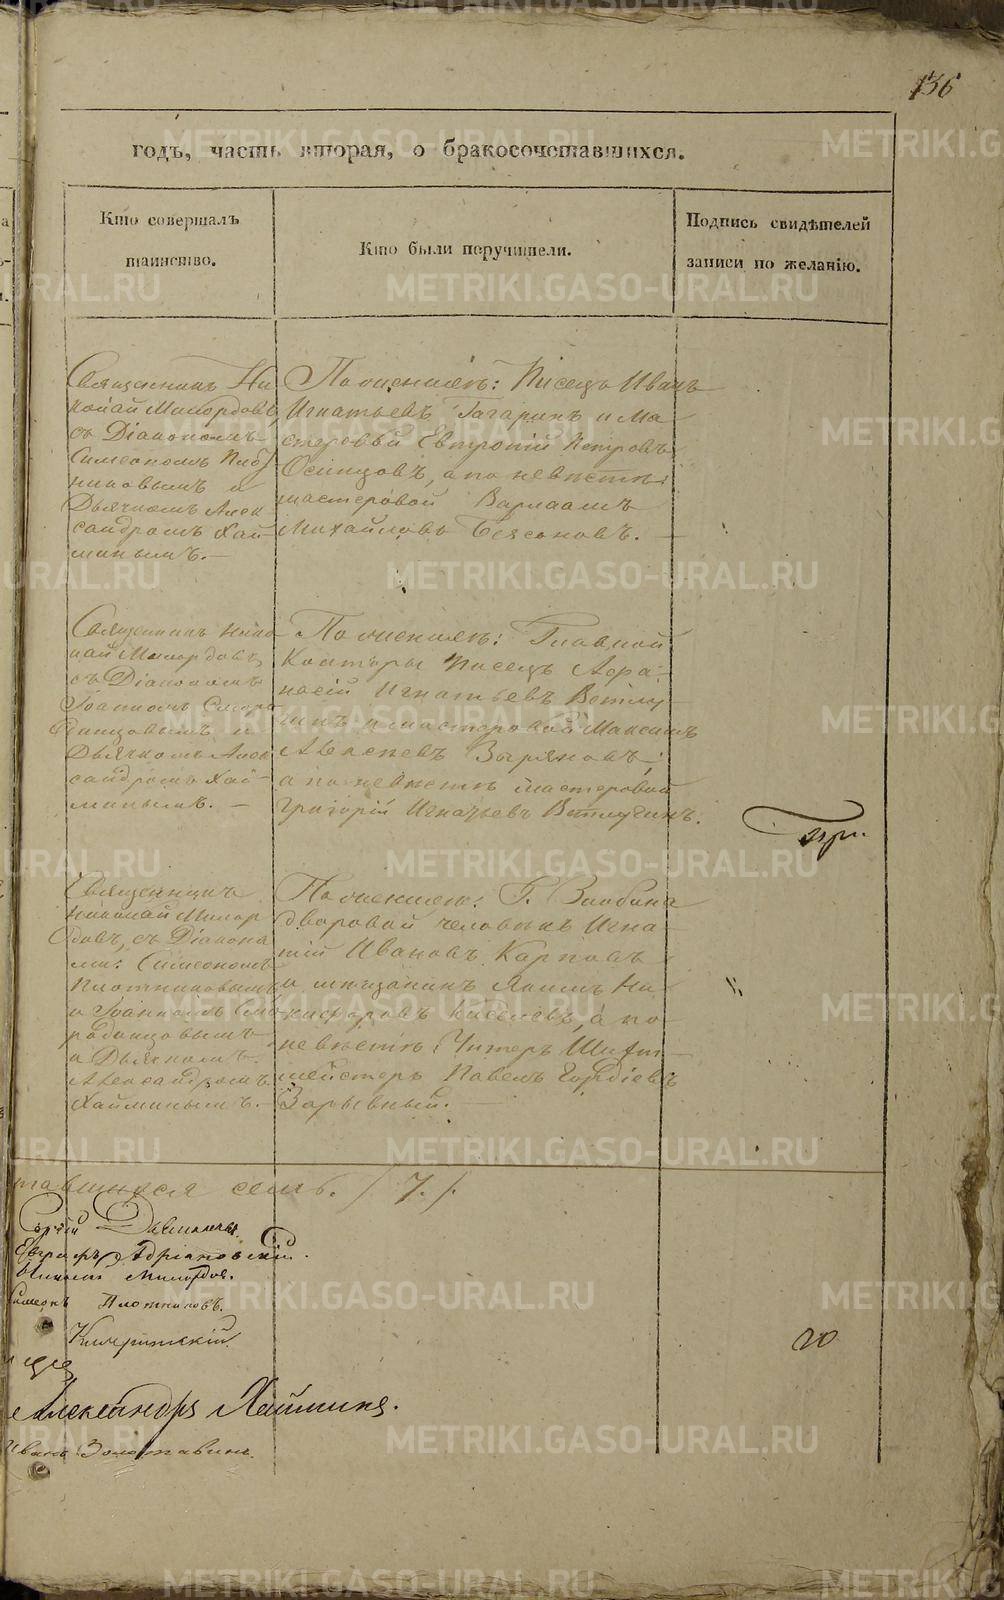 136
годъ, часть вторая, о бракосочетавшихся.
Кто совершалъ
таинство.
Кто были поручители.
Подпись свидѣтелей
записи по желанію.
Священникъ Ни
колай Милордовъ
съ Діакономъ
Симеономъ Плот
никовымъ и
Дьячкомъ Алек
сандромъ Хай
минымъ. —
По женихѣ: Писецъ Иванъ
Игнатьевъ Гагаринъ и Ма
стеровый Евтропій Петровъ
Осинцовъ, а по невѣстѣ:
мастеровой Варлаамъ
Михайловъ Безсоновъ. —
Священникъ Нико
лай Милордовъ,
съ Діакономъ
Іоанномъ Смо
родинцовымъ и
Дьячкомъ Алек
сандромъ Хай
минымъ. —
По женихѣ: Главной
Конторы писецъ Афа
насій Игнатьевъ Ветлу
гинъ и мастеровой Максимъ
Алексеевъ Зыряновъ;
а по невѣстѣ мастеровой
Григорій Игнатьевъ Ветлугинъ.
Священникъ
Николай Милор
довъ, съ Діакона
ми: Симеономъ
Плотниковымъ
и Іоанномъ Смо
родинцовымъ
и Дьячкомъ
Александромъ
Хайминымъ. —
По женихѣ: Г. Злобина
дворовой человѣкъ Игна
тій Ивановъ Карповъ
и мѣщанинъ Якимъ Ни
кифоровъ Киселевъ, а по
невѣстѣ: Шихт
мейстеръ Павелъ Гордіевъ
Зарывный. —
тавшихся семь. /7./
Сергій
Евграфъ Адріановскій.
Милордов.
Симеонъ Плотниковъ.
20
Александръ Хайминъ.
Иванъ Золотавинъ.
METRIKI.GASO-URAL.RU